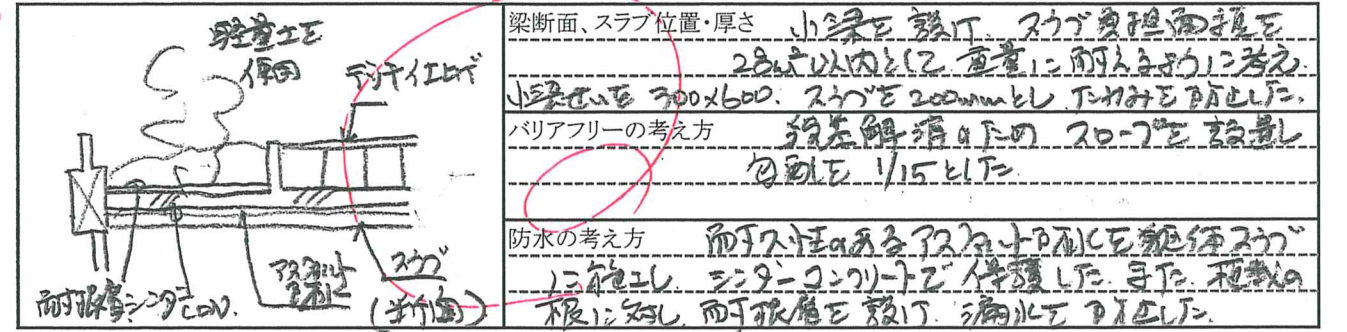 軽量土を
使用
デッキ仕上げ
耐根層
シンダーCON.
アスファルト
防水
スラブ
(断面)
梁断面、スラブ位置・厚さ 小梁を設け、スラブ負担面積を
28㎡以内として、重量に耐えるように考え、
小梁せいを300×600、スラブを200mmとし、たわみを防止した。
バリアフリーの考え方 段差解消のため スロープを設置し
勾配を 1/15とした
防水の考え方 耐久性のあるアスファルト防水を躯体スラブ
に施工し、シンダーコンクリートで保護した。また、植栽の
根に対し、耐根層を設け、漏水を防止した。